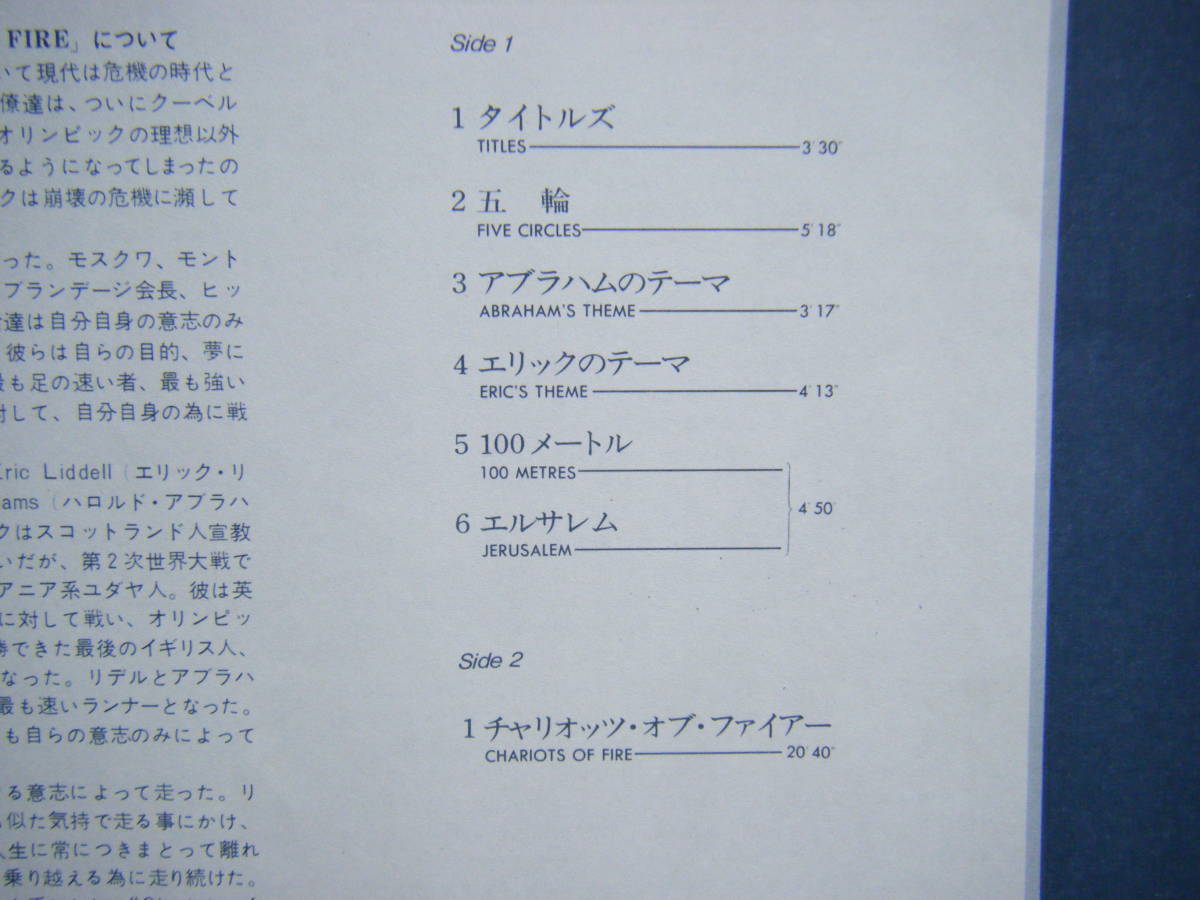 FIRE」について
いて現代は危機の時代と
僚達は、ついにクーベル
オリンピックの理想以外
るようになってしまったの
クは崩壊の危機に瀕して
った。モスクワ、モント
ブランデージ会長、ヒッ
達は自分自身の意志のみ
彼らは自らの目的、夢に
最も足の速い者、最も強い
対して、自分自身の為に戦
Eric Liddell (エリック・リ
ams (ハロルド・アブラハ
クはスコットランド人宣教
いだが、第2次世界大戦で
アニア系ユダヤ人。彼は英
に対して戦い、オリンピッ
勝できた最後のイギリス人、
なった。リデルとアブラハ
最も速いランナーとなった。
も自らの意志のみによって
る意志によって走った。リ
似た気持で走る事にかけ、
人生に常につきまとって離れ
乗り越える為に走り続けた。
Side 1
1 タイトルズ
TITLES 3′30″
2 五 輪
FIVE CIRCLES 5′18″
3 アブラハムのテーマ
ABRAHAM'S THEME 3′17″
4 エリックのテーマ
ERIC'S THEME 4′13″
5 100メートル
100 METRES
4′50″
6 エルサレム
JERUSALEM
Side 2
1 チャリオッツ・オブ・ファイアー
CHARIOTS OF FIRE 20′40″